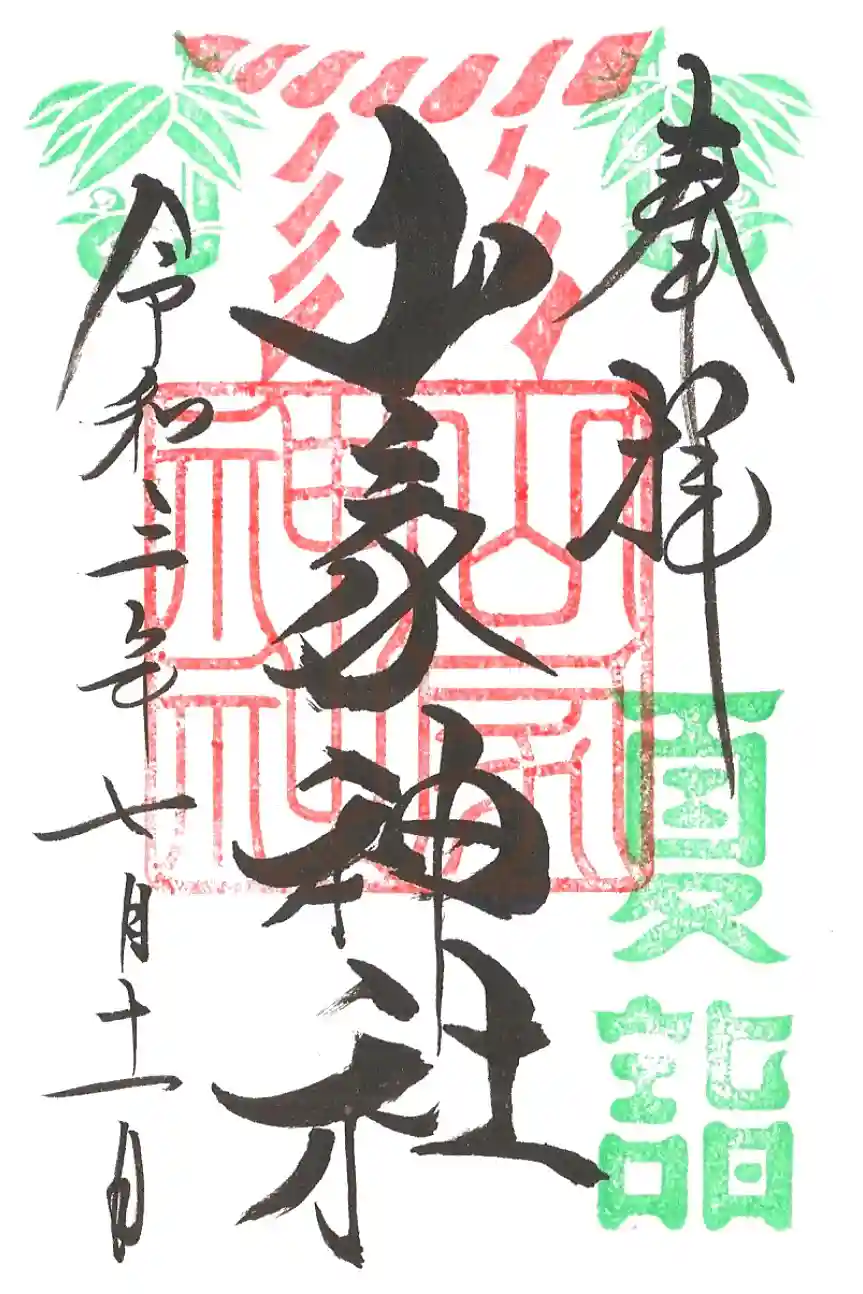 奉拝
夏詣
山家神社
山家神社
令和三年七月十一日